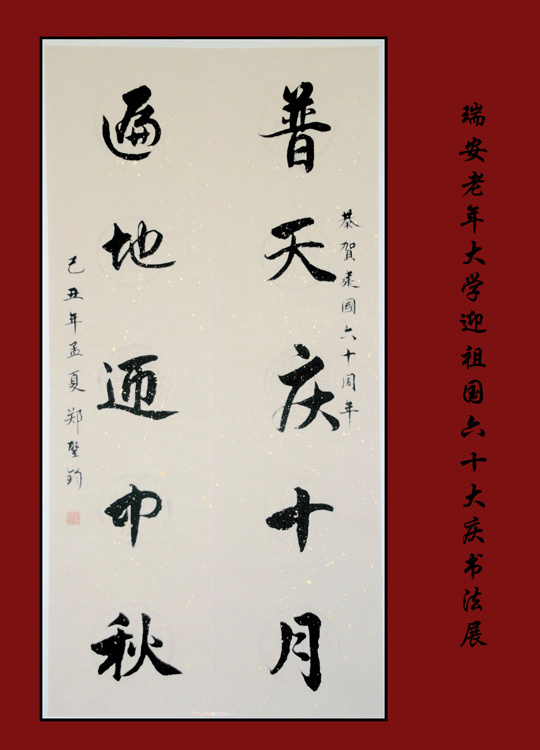 瑞安老年大学迎祖国六十大庆书法展
恭賀建國六十周年
普天庆十月
遍地迎中秋
己丑年孟夏 郑